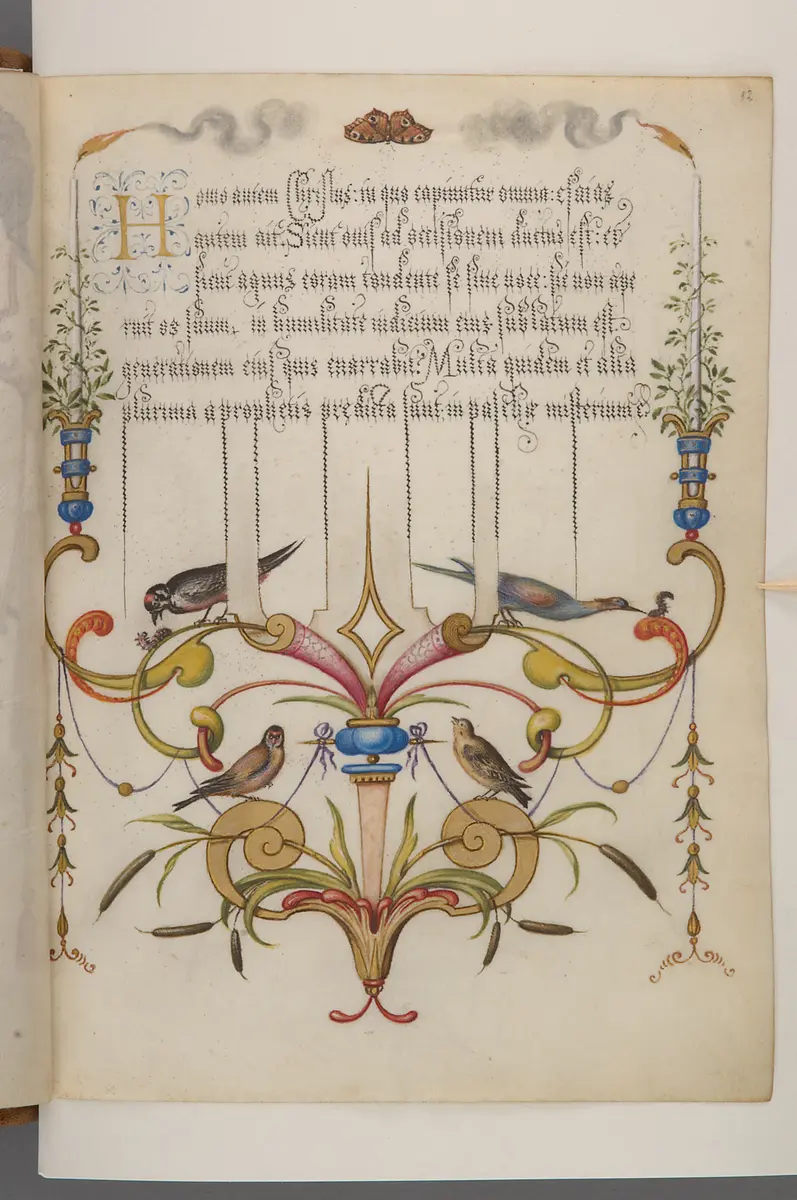 12
Homo autem Christus: in quo capimur omnia: Esaias
autem ait: Sicut ovis ad occisionem ductus est: et
sicut agnus coram tondente se sine voce: sic non ape
ruit os suum, in humilitate iudicium eius sublatum est.
generationem eius quis enarrabit? Multa quidem et alia
plurima a prophetis predicta sunt: in pasche misterium